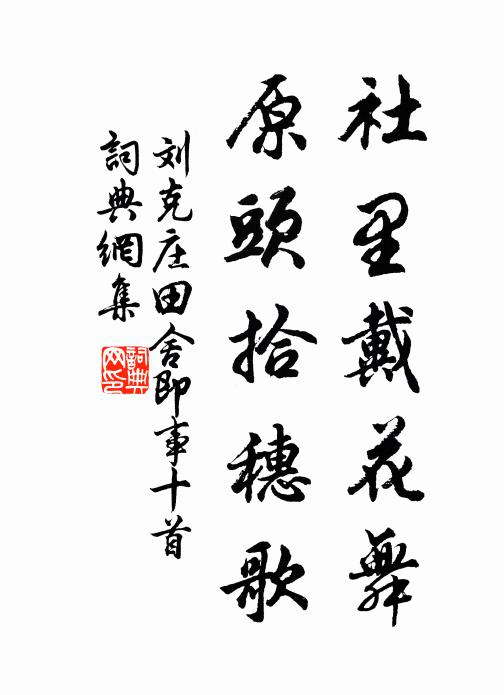 社里戴花舞
原頭拾穗歌
刘克庄田舍即事十首
詞典網集
詞典網印